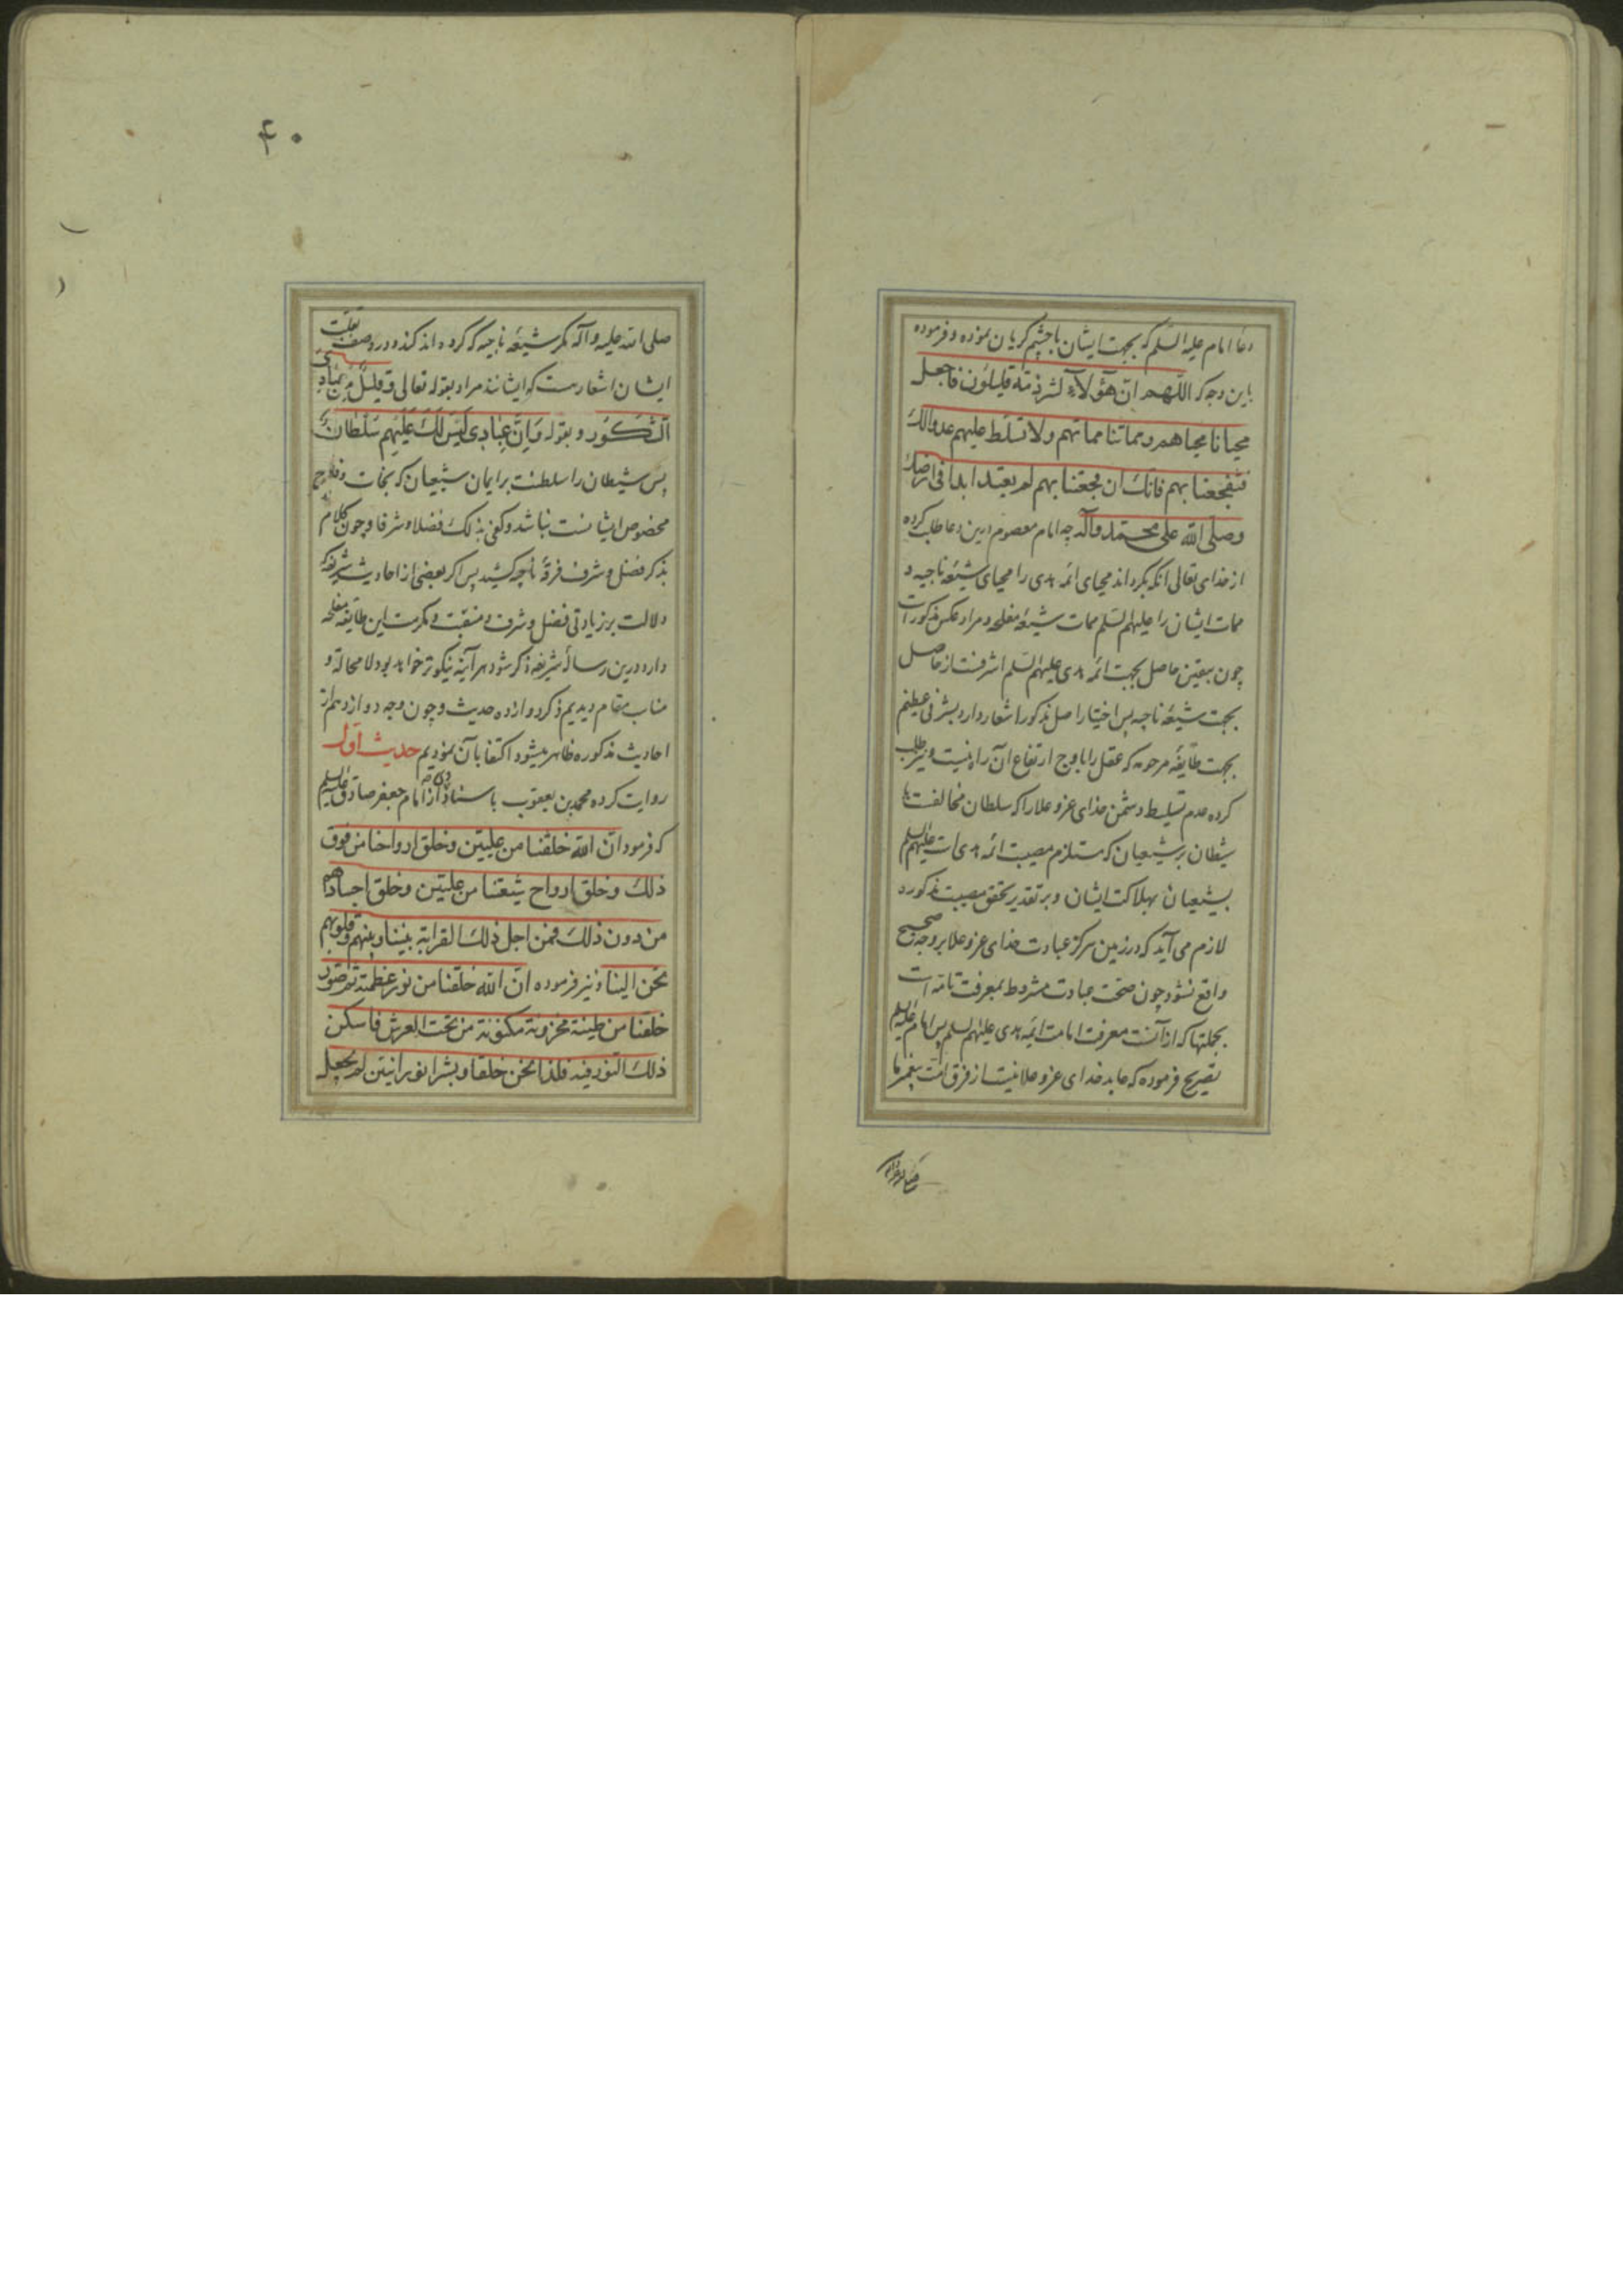 دعاء امام عليه السلم كه بجهت ايشان با چشم گريان نموده و فرموده
باين وجه كه اللهم ان هؤلاء لشرذمة قليلون فاجعل
محيانا محياهم ومماتنا مماتهم ولا تسلط عليهم عدوا لك
فتفجعنا بهم فانك ان فجعتنا بهم لم تعبد ابدا فى ارضك
وصلى الله على محمد وآله چه امام معصوم درين دعا طلب كرده
از خداى تعالى انكه بگرداند محياى ائمه هدى را محياى شيعهٔ ناجيه و
ممات ايشان را عليهم السلم ممات شيعهٔ مفلحه و مراد عكس مذكور است
چون بيقين حاصل بجهت ائمه هدى عليهم السلم اشرفست از حاصل
بجهت شيعهٔ ناجيه پس اختيار اصل مذكور اشعار دارد بشرفى عظيم
بجهت طايفهٔ مرحومه كه عقل را باوج ارتفاع آن راه نيست و نيز طلب
كرده عدم تسليط دشمن خداى عز و علا را كه سلطان مخالفت با
شيطان بر شيعيان كه مستلزم مصيبت ائمه هدى است عليهم السلم
بشيعيان بهلاكت ايشان و بر تقدير تحقق مصيبت مذكوره
لازم مى آيد كه در زمين مركز عبادت خداى عز و علا بر وجه صحيح
واقع نشود چون صحت عبادت مشروط بمعرفت تامه است
بجملتها كه از آنست معرفت امامت ائمه هدى عليهم السلم پس امام عليه السلم
تصريح فرموده كه عابد خداى عز و علا نيست از فرق امت پيغمبر ما
صلى الله عليه وآله
۴۰
صلى الله عليه وآله مگر شيعهٔ ناجيه كه كرده اند و در وصف بقلت
ايشان اشعار هست كه ايشانند مراد بقوله تعالى وقليل من عبادى
الشكور و بقوله وان عبادى ليس لك عليهم سلطان
پس شيطان را سلطنت بر ايمان شيعيان كه نجات و فلاح
مخصوص ايشانست نباشد وكفى بذلك فضلا وشرفا و چون كلام
بذكر فضل و شرف فرقهٔ ناجيه كشيد پس اگر بعضى از احاديث شريفه كه
دلالت بر زيادتى فضل و شرف و منقبت و مكرمت اين طايفهٔ مفلحه
دارد درين رسالهٔ شريفه ذكر شود هر آينه نيكوتر خواهد بود لا محالة و
مناسب مقام ديديم ذكر دوازده حديث و چون وجه دوازدهم از
احاديث مذكوره ظاهر ميشود اكتفا بآن نموديم حديث اول
روايت كرده محمد بن يعقوب باسناد از امام جعفر صادق عليه السلم
كه فرمود ان الله خلقنا من عليين وخلق ارواحنا من فوق
ذلك وخلق ارواح شيعتنا من عليين وخلق اجسادهم
من دون ذلك فمن اجل ذلك القرابة بيننا وبينهم وقلوبهم
تحن الينا و نيز فرموده ان الله خلقنا من نور عظمته ثم صور
خلقنا من طينة مخزونة مكنونة من تحت العرش فاسكن
ذلك النور فيه فكنا نحن خلقا وبشرا نورانيين لم يجعل